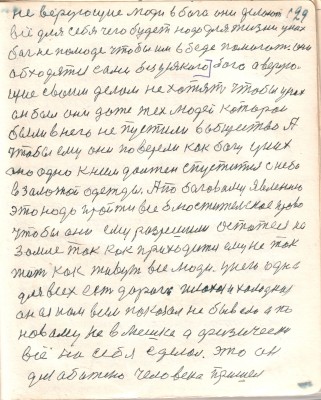 не верующие люди в бога они делают 129
всё для себя чего будет надо для жизни у них
бог не помоге чтобы им в беде помогат. они
обходятся сами без всякого бога а верую-
щие своим делом не хотят чтобы у них
он был они даже тех людей которои
были в него не пустили в общество А
чтобы ему они поверели как богу у них
оно одно к ним должен спустится с неба
в залотой одежды. А по баговому явлению
это надо пройти все в мостительское право
чтобы они ему разрешили остатся на
земле так как приходится ему не так
жит как живут все люди. у него одна
для всех ест дорога плохая и холодная
он ея нам всем показал не был ело а по
новаму не вмешка а физически
всё на себя сделал. это он
для обыжно человека пришел